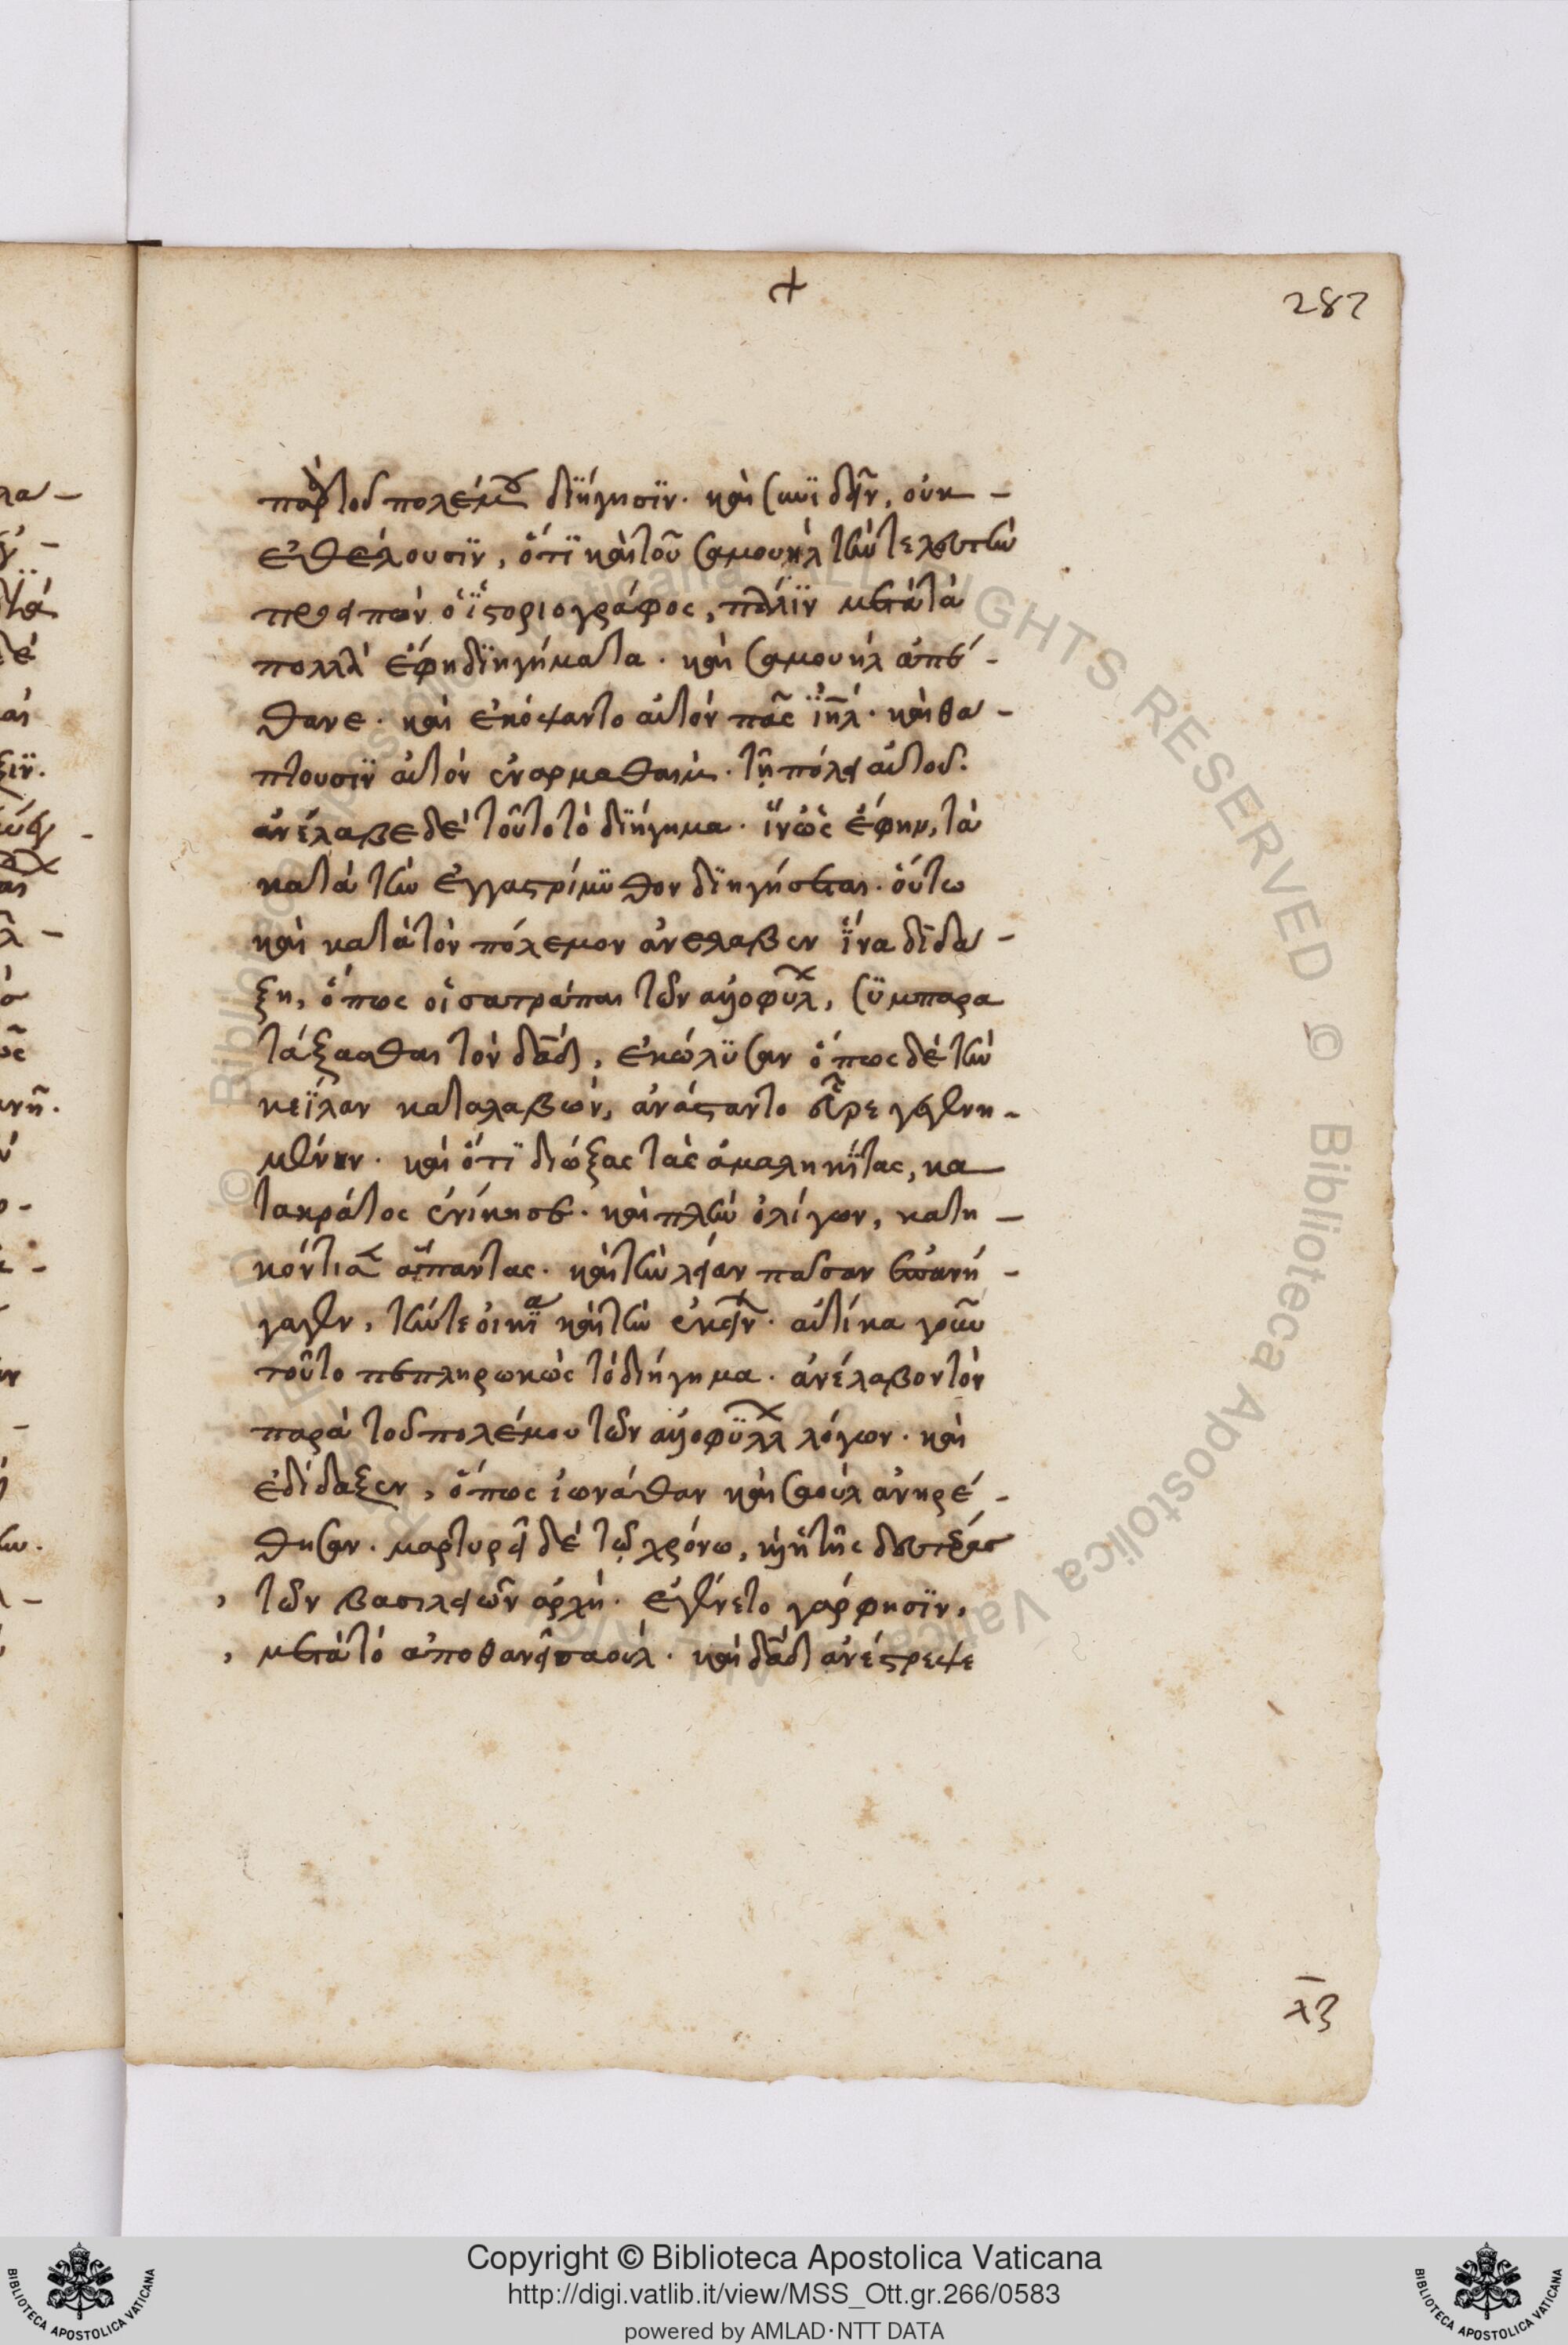 +
282
παρὰ τοῦ πολέμου διήγησϊν. καὶ συνϊδεῖν, οὐκ -
ἐθέλουσϊν, ὅτϊ καὶ τοῦ σαμουὴλ τὴν τελευτὴν
προειπὼν ὁ ἱστοριογράφος, πάλϊν μετὰ τὰ
πολλὰ ἔφη διηγήματα. καὶ σαμουὴλ ἀπέ -
θανε. καὶ ἐκόψαντο αὐτὸν πᾶς ἰη̅λ. καὶ θα -
πτουσϊν αὐτὸν ἐν αρμαθαὶμ. τῇ πόλει αὐτοῦ.
ἀνέλαβε δὲ τοῦτο τὸ διήγημα. ἵν' ὡς ἔφην, τὰ
κατὰ τὴν ἐγγαστρίμϋθον διηγήσεται. οὕτω
καὶ κατὰ τὸν πόλεμον ἀνελαβεν ἵνα διδα -
ξη, ὅπως οἱ σατράπαι τῶν ἀλλοφυλ, σϋμπαρα
τάξασθαι τὸν δα̅δ, ἐκώλϋσαν ὅπως δὲ τὴν
κεϊλαν καταλαβὼν, ἀνάσταντο εὗρε γεγενη -
μένην. καὶ ὅτϊ διώξας τὰς ἀμαληκίτας, κα
τακράτος ἐνίκησε. καὶ πλὴν ὀλίγων, κατη -
κόντισεν ἅπαντας. καὶ τὴν λείαν πᾶσαν ἐπανή -
γαγεν, τήν τε οἰκεία καὶ τὴν ἐκείνων. αὐτίκα γοῦν
τοῦτο πεπληρωκὼς τὸ διήγημα. ἀνέλαβον τὸν
παρὰ τοῦ πολέμου τῶν ἀλλοφϋλλ λόγων. καὶ
ἐδίδαξεν, ὅπως ἰωνάθαν καὶ σαοὺλ ἀνηρέ -
θησαν. μαρτυρεῖ δὲ τῷ χρόνω, καὶ ἡ τῆς δευτέρας
, τῶν βασιλειῶν ἀρχὴ. ἐγένετο γάρ φησϊν,
, μετὰ τὸ ἀποθανεῖν σαοὺλ. καὶ δα̅δ ἀνέστρεψε
λζ
Copyright © Biblioteca Apostolica Vaticana
http://digi.vatlib.it/view/MSS_Ott.gr.266/0583
powered by AMLAD·NTT DATA